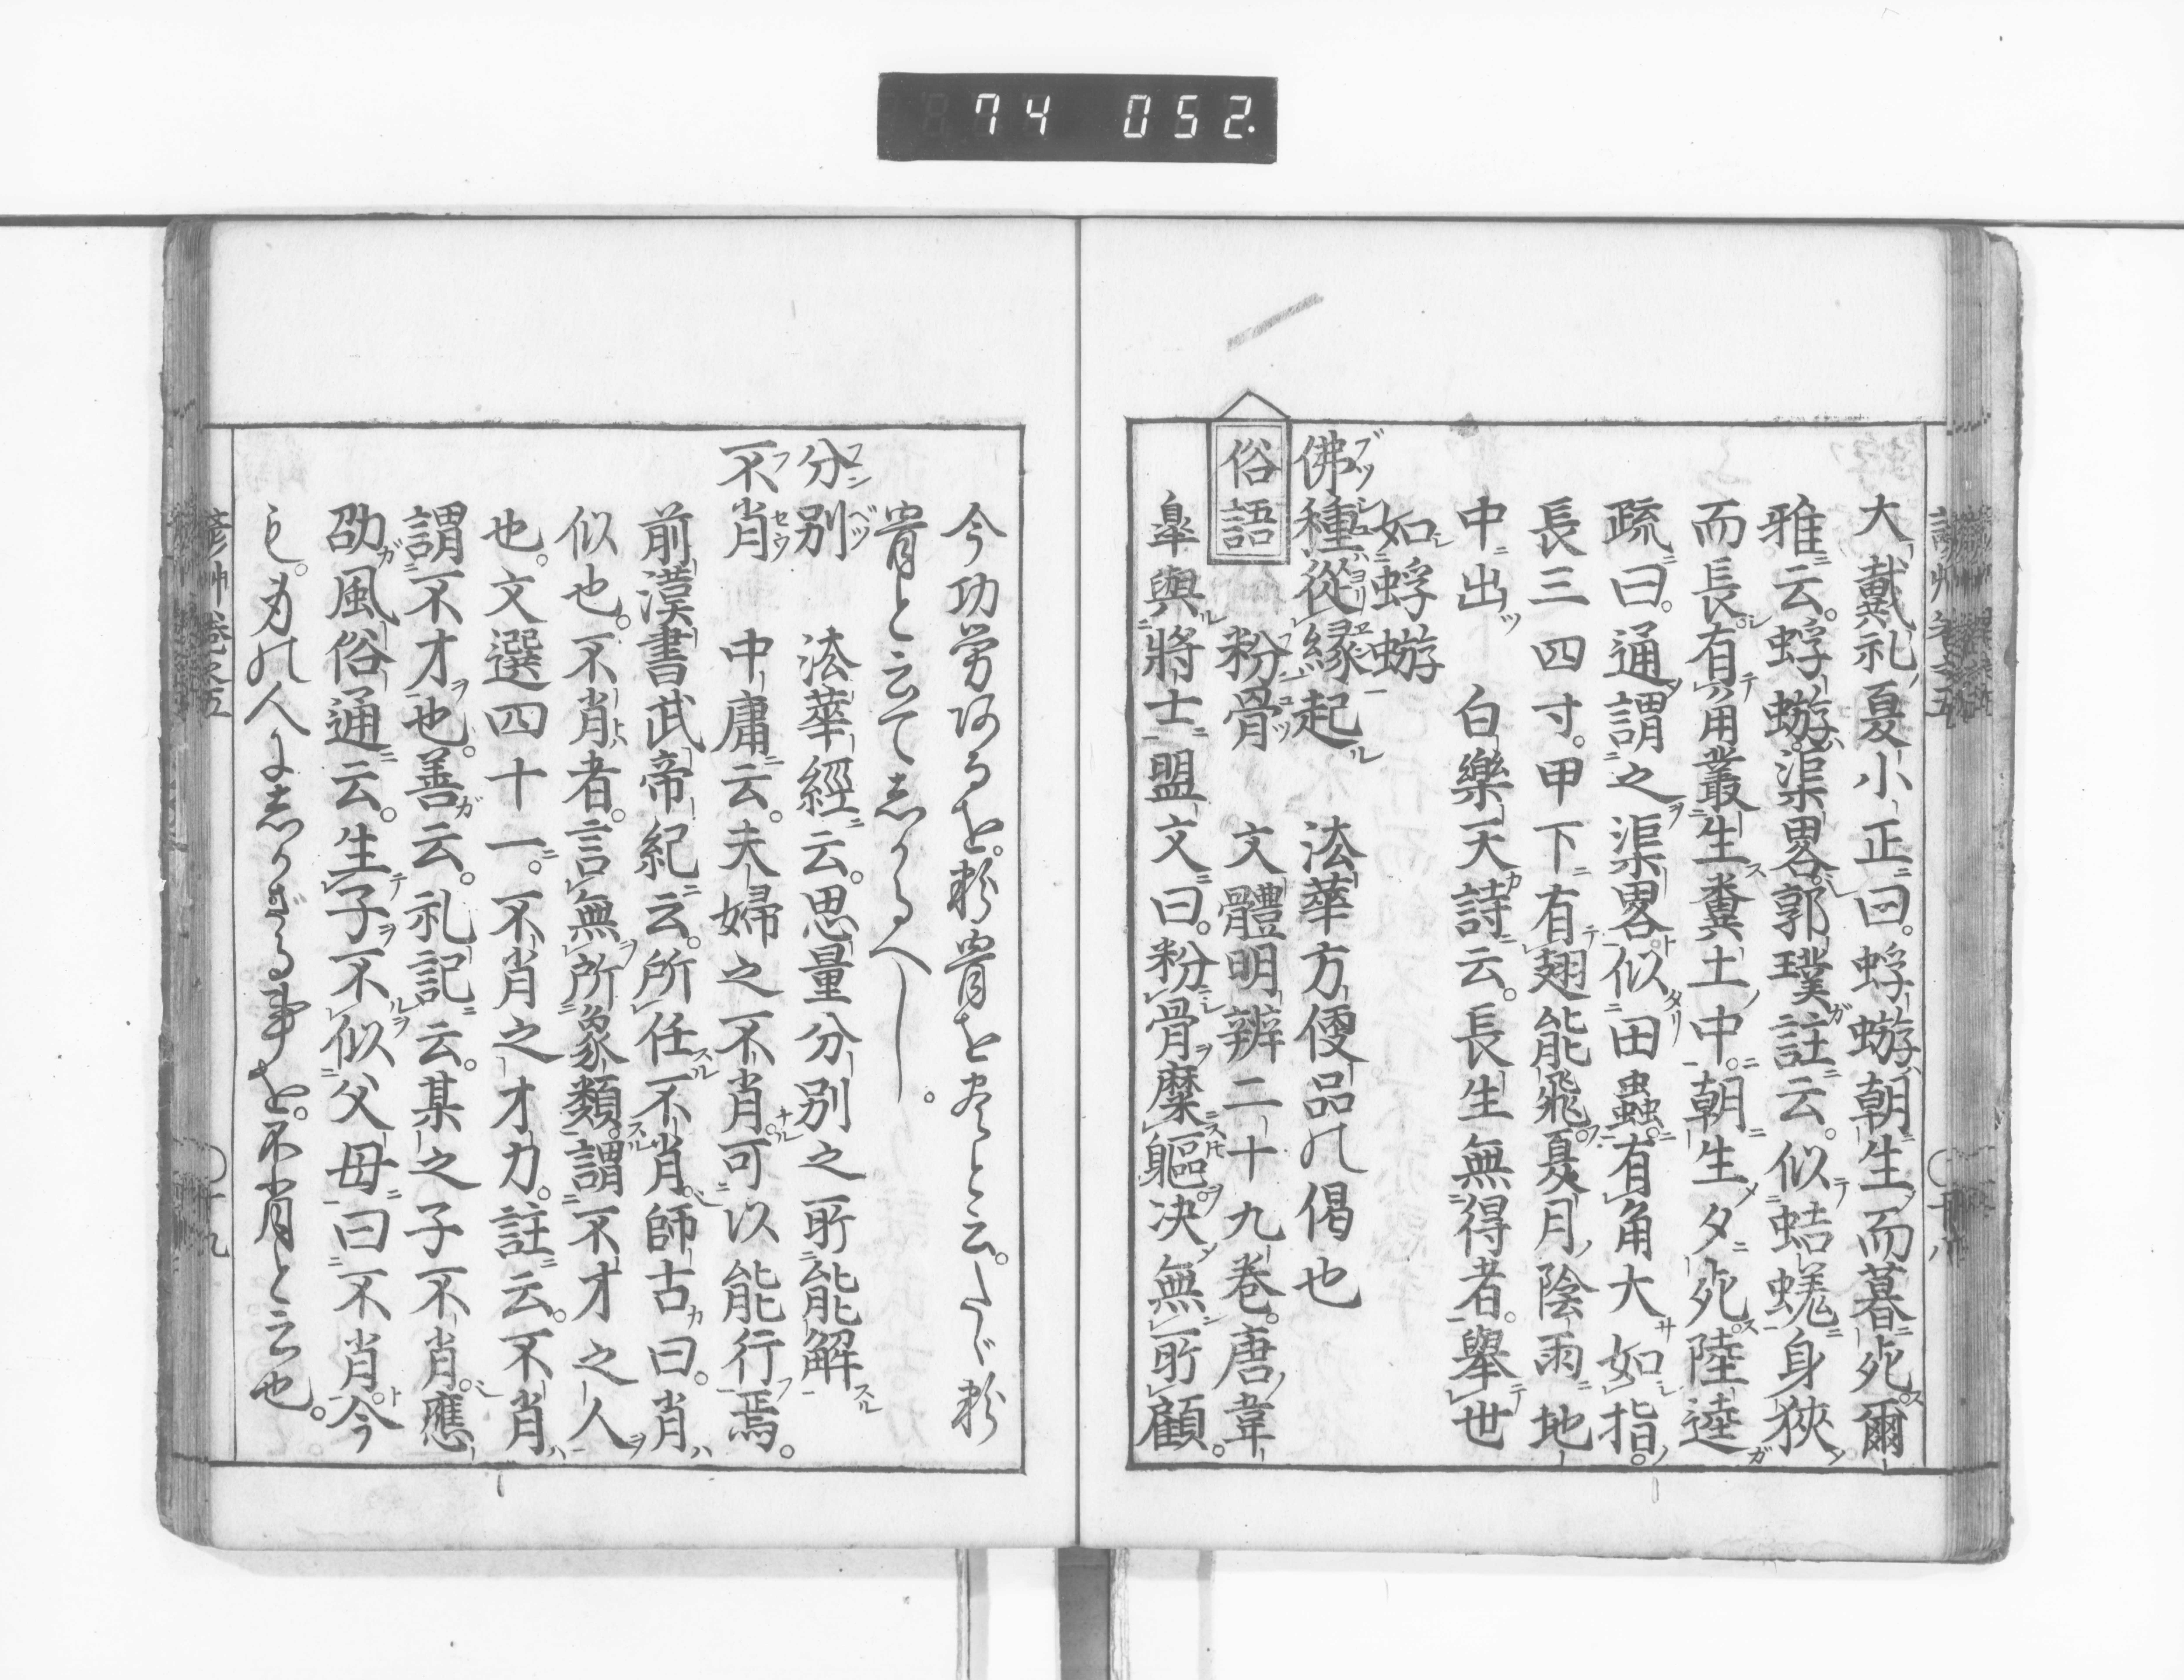 74 052.
大戴礼夏小正曰。蜉蝣朝生而暮死。爾
雅云。蜉蝣。渠畧。郭璞註云。似蛣蜣身狹
而長。有角叢生糞土中。朝生夕死。陸逵
疏曰。通謂之渠畧。似田蟲。有角大如指。
長三四寸。甲下有翅能飛。夏月陰雨地
中出 白樂天詩云。長生無得者。舉世
如蜉蝣
佛種從縁起 法華方便品の偈也
俗語 粉骨 文體明辨二十九巻。唐韋
皐與將士盟文曰。粉骨糜軀。决無所顧。
今功労あるを。粉骨を尽と云。たゞ粉
骨と云てしかるへし。
分別 法華經云。思量分別之所能解
不肖 中庸云。夫婦之不肖。可以能行焉。
前漢書武帝紀云。所任不肖。師古曰。肖
似也。不肖者。言無所象類。謂不才之人
也。文選四十一。不肖之才力。註云。不肖
謂不才也。善云。礼記云。某之子不肖。應
劭風俗通云。生子不似父母曰不肖。今
も。身の人にしかざる事を。不肖と云也。
諺艸巻之五
十九